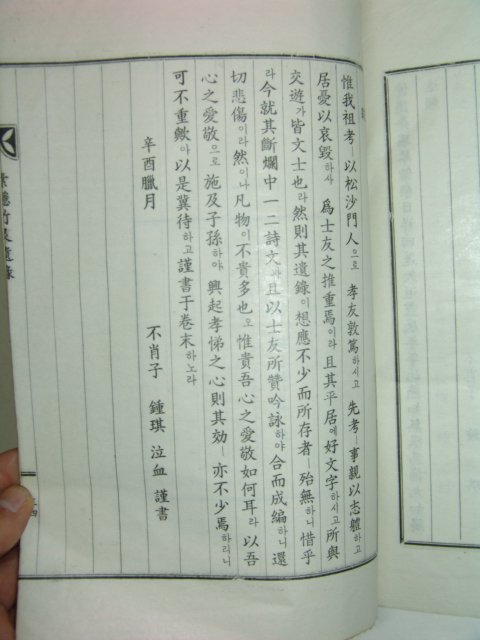 惟我祖考ㅣ以松沙門人으로 孝友敦篤하시고 先考ㅣ事親以志體하고
居憂以哀毁하사 爲士友之推重焉이라且其平居에好文字하시고所與
交遊가皆文士也라然則其遺錄이想應不少而所存者ㅣ殆無하니惜乎
라今就其斷爛中一二詩文하야且以士友所贊吟詠하야合而成編하니還
切悲傷이라然이나凡物이不貴多也오惟貴吾心之愛敬如何耳라以吾
心之愛敬으로施及子孫하야興起孝悌之心則其効ㅣ亦不少焉하리니
可不重歟아以是冀待하고謹書于卷末하노라
辛酉臘月
不肖子 鍾琪 泣血 謹書